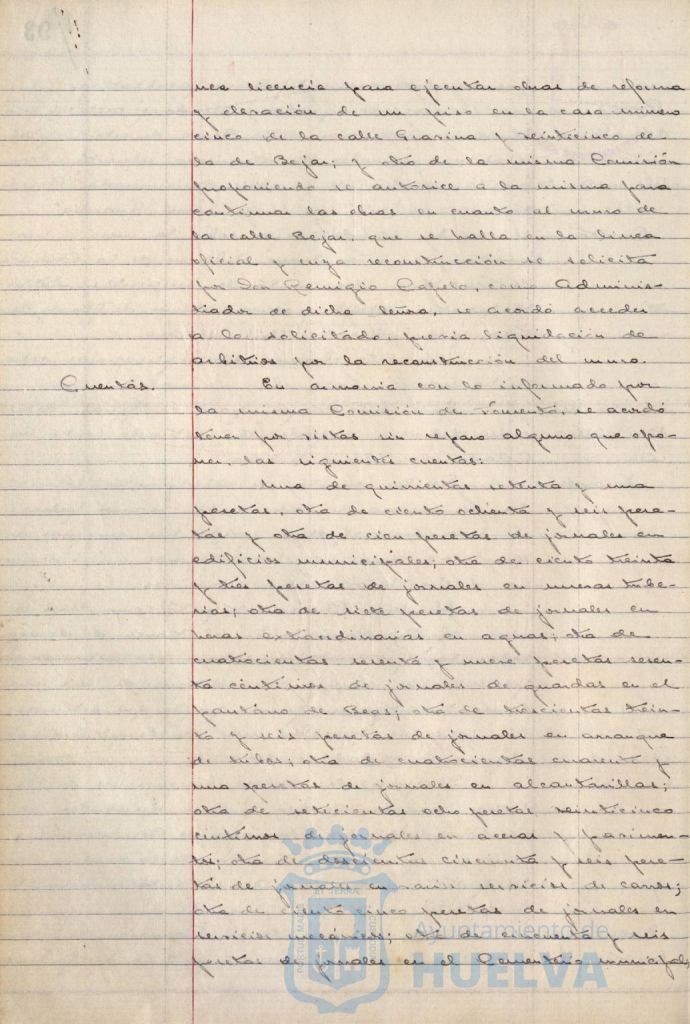 nea licencia para ejecutar obras de reforma
y elevación de un piso en la casa número
cinco de la calle Gravina y veinticinco de
la de Bejar; y otro de la misma Comisión
proponiendo se autorice a la misma para
continuar las obras en cuanto al muro de
la calle Bejar, que se halla en la línea
oficial y cuya reconstrucción se solicita
por Don Remigio, como Adminis-
trador de dicha, se acordó acceder
a lo solicitado, previa liquidación de
arbitrios por la reconstrucción del muro.
Cuentas.
En armonía con lo informado por
la misma Comisión de Fomento, se acordó
tener por vistas sin reparo alguno que opo-
ner, las siguientes cuentas:
Una de quinientas setenta y una
pesetas, otra de ciento ochenta y seis pese-
tas y otra de cien pesetas de jornales en
edificios municipales; otra de ciento treinta
y tres pesetas de jornales en nuevas tube-
rias; otra de siete pesetas de jornales en
horas extraordinarias en aguas; otra de
cuatrocientas sesenta y nueve pesetas sesen-
ta céntimos de jornales de guardas en el
pantano de Beas; otra de trescientas trein-
ta y seis pesetas de jornales en arranque
de tubos; otra de cuatrocientas cuarenta y
una pesetas de jornales en alcantarillas;
otra de setecientas ocho pesetas veinticinco
centimos de jornales en aceras y pavimen-
tos; otra de doscientas cincuenta y seis pese-
tas de jornales en varios servicios de carros;
otra de ciento cinco pesetas de jornales en
servicios mecánicos; otra de cincuenta y seis
pesetas de jornales en el Cementerio municipal;
Ayuntamiento de
HUELVA